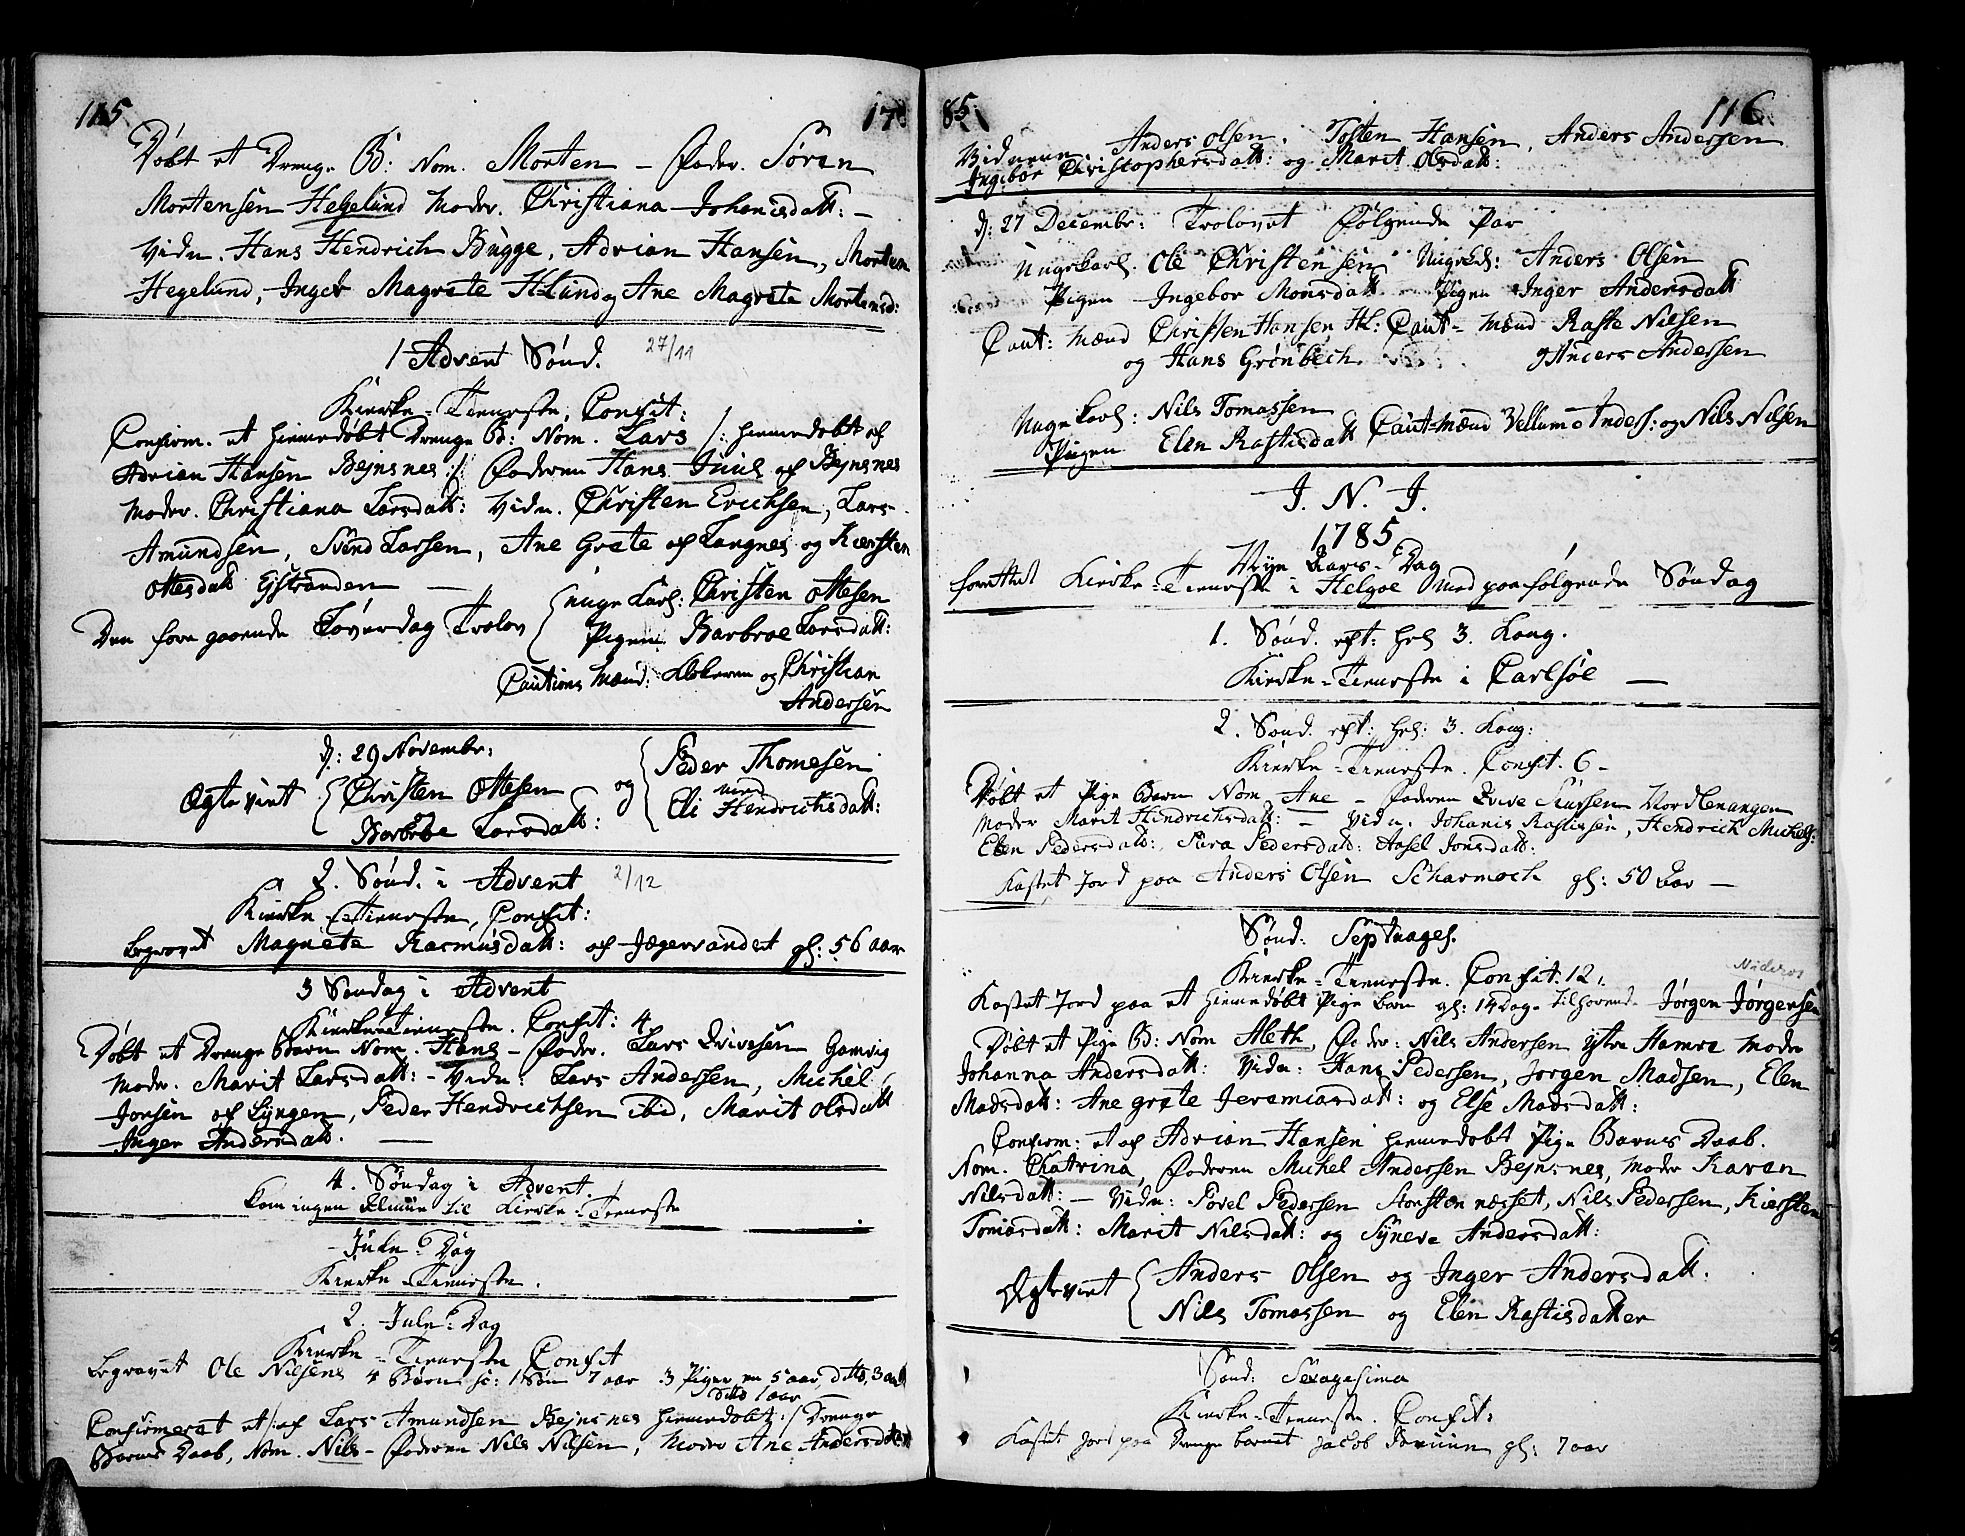 115 17
Døbt et Drenge B: Nom. Morten - Fader. Søren
Mortensen Hegelund Moder. Christiana Johanisdatt: -
Vidn. Hans Hendrich Bugge, Adrian Hansen, Morten
Hegelund, Inger Magrete H:Lund og Ane Magrete Mortensd:
1 Advent Sønd. 27/11
Kircke-Tieneste, Confit:
Confirm. et hiemedøbt Drenge B: Nom. Lars /: hiemedøbt af
Adrian Hansen Bejnsnes :/ Faderen Hans Juul af Bejnsnes
Moder. Christiana Larsdatt: Vidn. Christen Erichsen, Lars
Amundsen, Svend Larsen, Ane Grete af Langnes og Kiersten
Ottesdatt Ejstranden
Den foregaaende Løverdag Trolov Unge Karl: Christen Ottesen
Pigen Barbroe Larsdatt:
Cautions Mænd: Klokeren og Christian
Andersen
d: 29 Novembr:
Ægteviet Christen Ottesen og Peder Thomesen
med
Barbroe Larsdatt: Eli Hendrichsdatt:
2. Sønd. i Advent 2/12
Kircke-Tieneste, Confit:
Begravet Magneta Rasmusdatt: af Jægervandet gl: 56 aar
3 Søndag i Advent
Kircke-Tieneste. Confit: 4
Døbt et Drenge Barn Nom. Hans - Fader. Lars Iversen Gamvig
Moder. Marit Larsdatt: - Vidn: Lars Andersen, Michel
Jonsen af Lyngen, Peder Hendrichsen ibid, Marit Olsdatt
Inger Andersdatt.
4. Søndag i Advent
Kom ingen Almue til Kircke-Tieneste
Jule-Dag
Kircke-Tieneste.
2. Jule-Dag
Kircke-Tieneste Confit
Begravet Ole Nilsens 4 Børn sc: 1 Søn 7 aar 3 Piger, en 5 aar, ditto, 3 aar
ditto 1 aar
Confirmeret et /: af Lars Amundsen Bejnsnes hiemedøbt :/ Drenge
Barns Daab, Nom. Nils - Faderen Nils Nilsen, Moder Ane Andersdatter
85 116
Vidnerne Anders Olsen, Tosten Hansen, Anders Andersen
Ingebor Christophersdatt: og Marit Olsdatt:
d: 27 Decembr: Trolovet følgende Par
Ungekarl. Ole Christensen Ungekl: Anders Olsen
Pigen Ingebor Monsdatt Pigen Inger Andersdatt
Caut: Mænd Christen Hansen Hl: Caut-Mænd Raste Nilsen
og Hans Grønbech og Anders Andersen
Ungekarl: Nils Tomassen
Pigen Elen Rastisdatt Caut-Mænd Vellum Anders: og Nils Nilsen
J. N. J.
1785
Nyt Aars-Dag
forrettet Kircke-Tieneste i Helgøe med paafølgende Søndag
1. Sønd. eft: hel 3. Kong.
Kircke-Tieneste i Carlsøe
2. Sønd. eft: hel: 3. Kong:
Kircke-Tieneste. Confit. 6 -
Døbt et Pige Barn Nom Ane - Faderen Iver Siursen Nordlenangen
Moder Marit Hindrichsdatt: - Vidn: Johanis Rastissen, Hendrich Michels:
Elen Pedersdatt:, Sara Pedersdatt: Aasel Jonsdatt:
Kastet Jord paa Anders Olsen Scharmoch gl: 50 Aar
Sønd: Septuages.
Kircke-Tieneste. Confit. 12.
Nideros
Kastet Jord paa et hiemedøbt Pige Barn gl: 14 Dage tilhørende Jørgen Jørgensen
Døbt et Pige B: Nom Aleth, Fader: Nils Andersen ytre Hamre Moder
Johanna Andersdatt: Vidn: Hans Pedersen, Jørgen Madsen, Elen
Madsdatt: Ane grete Jeremiasdatt: og Else Madsdatt:
Confirm: et af Adrian Hansen hiemedøbt Pige Barns Daab.
Nom. Chatrina, Faderen Michel Andersen Bejnsnes, Moder Karen
Nilsdatt: - Vidn: Povel Pedersen Storstennesset, Nils Pedersen, Kiersten
Tomasdatt: Marit Nilsdatt: og Syneve Andersdatt:
Ægteviet Anders Olsen og Inger Andersdatt.
Nils Tomassen og Elen Rastisdatter
Sønd: Sexagesima
Kircke-Tieneste. Confit:
Kastet Jord paa Drenge barnet Jacob gl: 7 aar